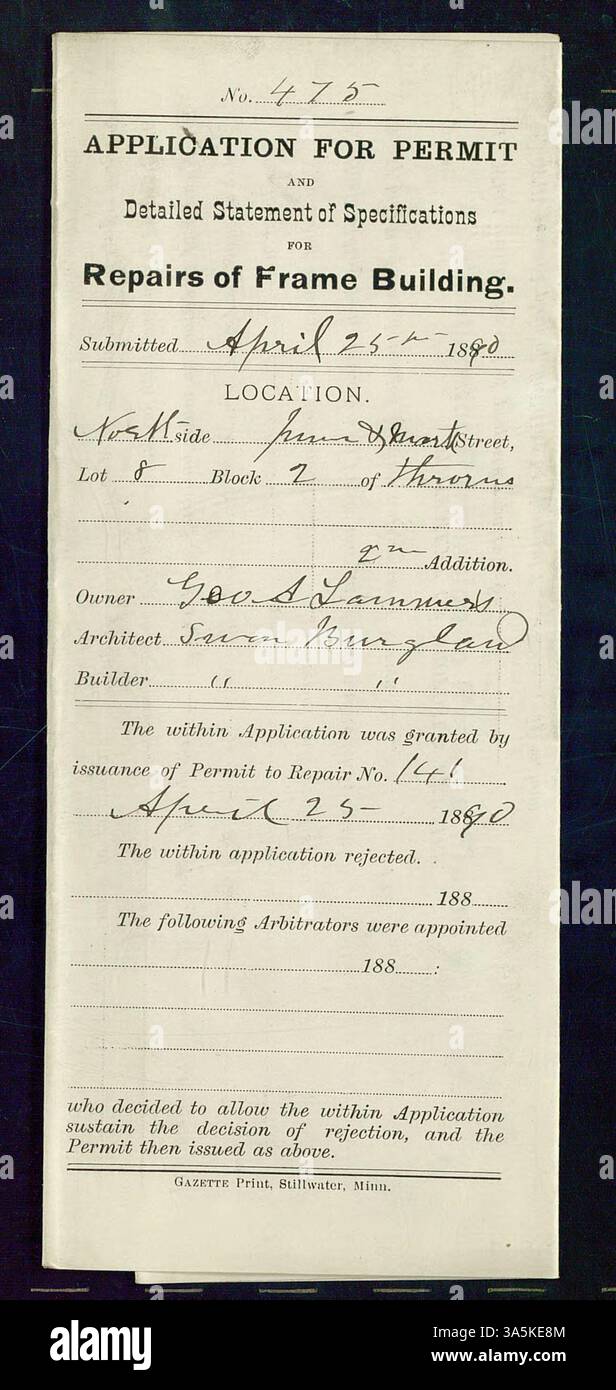 No. 475
APPLICATION FOR PERMIT
AND
Detailed Statement of Specifications
FOR
Repairs of Frame Building.
Submitted April 25th 1890
LOCATION.
North side & Street,
Lot 8 Block 2 of
Addition.
Owner Geo A Lammers
Architect Swan Burglan
Builder " "
The within Application was granted by
issuance of Permit to Repair No. 141
April 25 1890
The within application rejected.
188
The following Arbitrators were appointed
188 :
who decided to allow the within Application
sustain the decision of rejection, and the
Permit then issued as above.
GAZETTE Print, Stillwater, Minn.
alamy
Image ID: 3A5KE8M
www.alamy.com